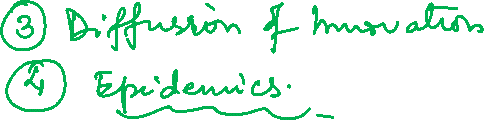 ③ Diffusion of Innovations
④ Epidemics.